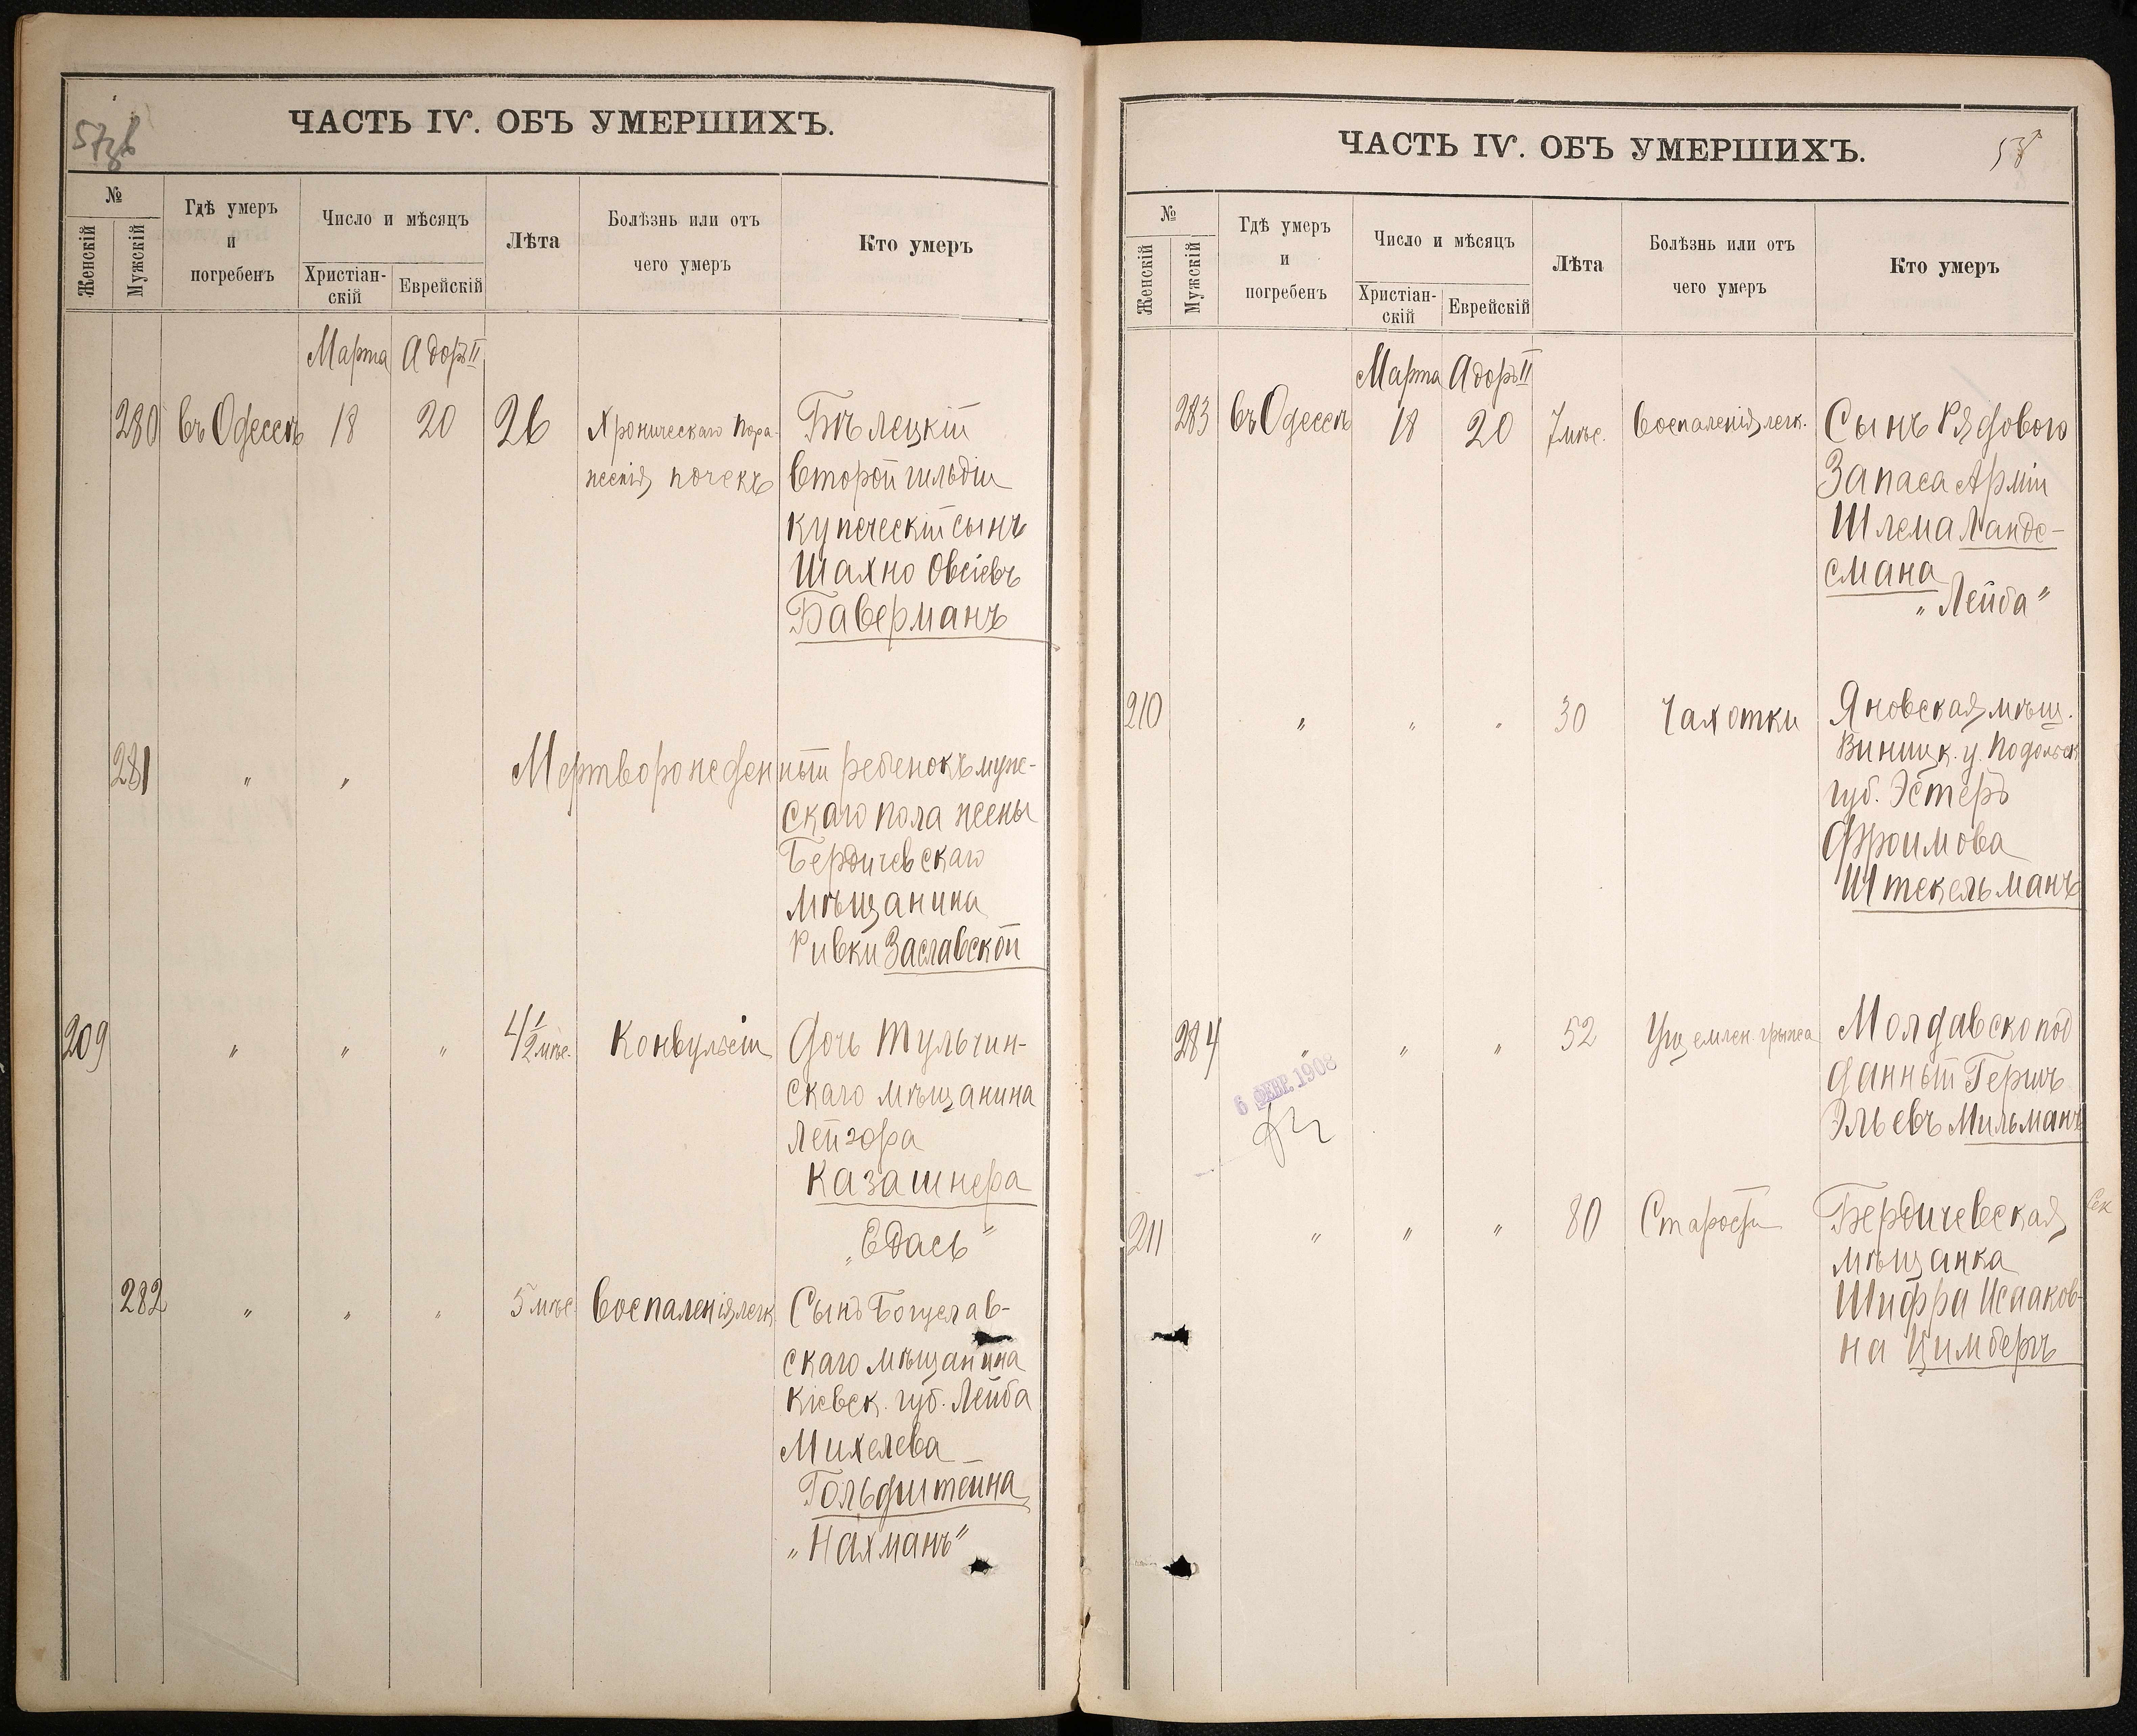 57об
ЧАСТЬ IV. ОБЪ УМЕРШИХЪ.
№
Женскій
Мужскій
Гдѣ умеръ
и
погребенъ
Число и мѣсяцъ
Христіан-
скій
Еврейскій
Лѣта
Болѣзнь или отъ
чего умеръ
Кто умеръ
Марта Адоръ II
280 въ Одессѣ 18 20 26 Хроническаго пора- Бѣлецкій
женія почекъ второй гильдіи
купеческій сынъ
Шахно Овсіевъ
Баверманъ
281 " " Мертворожденный ребенокъ муж-
скаго пола жены
Бердичевскаго
мѣщанина
Ривки Заславской
209 " " " 4 1/2 мѣс. Конвульсіи Дочь Тульчин-
скаго мѣщанина
Лейзора
Казашнера
"Едась"
282 " " " 5 мѣс. Воспаленія легк. Сынъ Богуслав-
скаго мѣщанина
Кіевск. губ. Лейба
Михелева
Гольдштейна
"Нахманъ"
ЧАСТЬ IV. ОБЪ УМЕРШИХЪ.
58
№
Женскій
Мужскій
Гдѣ умеръ
и
погребенъ
Число и мѣсяцъ
Христіан-
скій
Еврейскій
Лѣта
Болѣзнь или отъ
чего умеръ
Кто умеръ
Марта Адоръ II
283 въ Одессѣ 18 20 7 мѣс. Воспаленія легк. Сынъ Рядового
Запаса Арміи
Шлема Ландс-
смана
"Лейба"
210 " " " 30 Чахотки Яновская мѣщ.
Винницк. у. Подольск
губ. Эстеръ
Фроимова
Штекельманъ
284 " " " 52 Ущемлен. грыжа Молдавскопод
данный Гершъ
Эльевъ Мильманъ
6 ФЕВР. 1908
211 " " " 80 Старости Бердичевская
мѣщанка
Шифра Исааков-
на Цимберъ